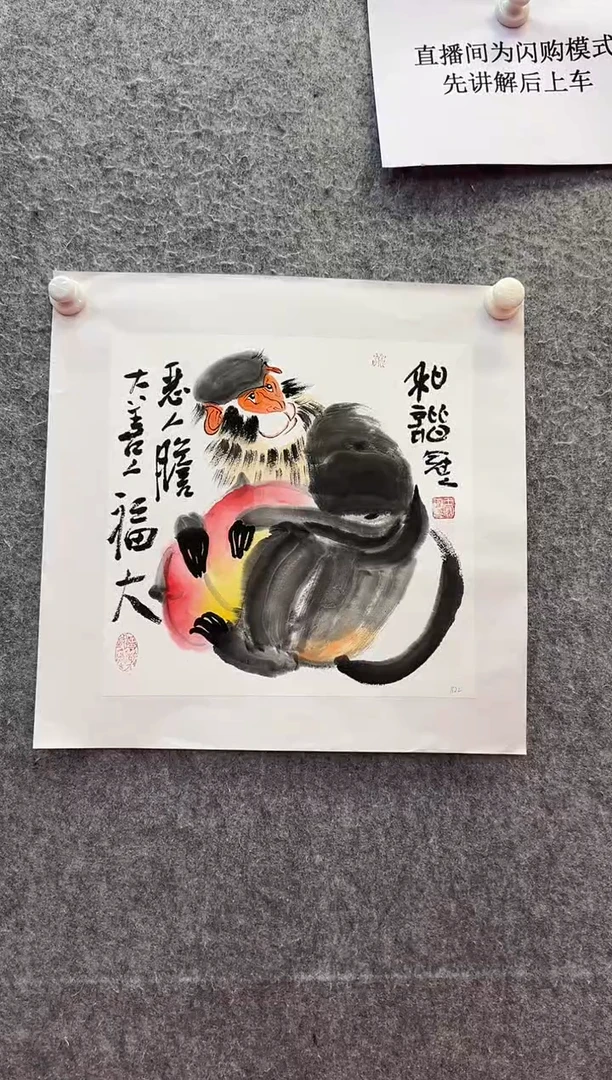 直播间为闪购模式
先讲解后上车
和諧
惡人膽
大善人福大